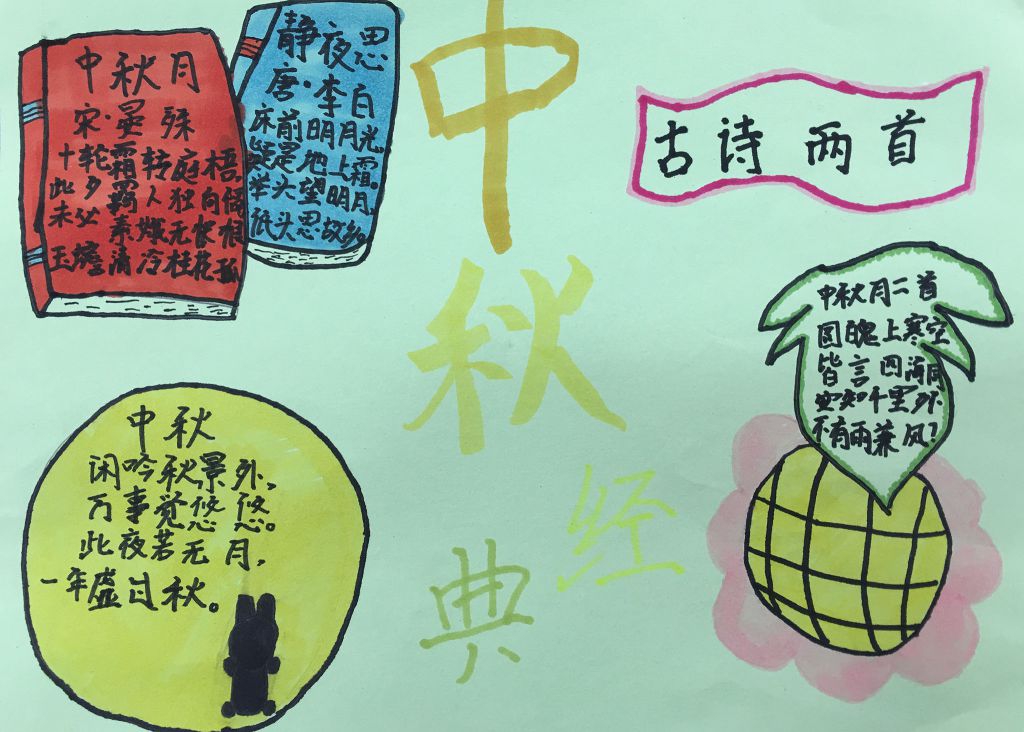 中秋月
宋·晏殊
十轮霜转庭梧
此夕羁人独向隅
未必素娥无怅恨
玉蟾清冷桂花孤
静夜思
唐·李白
床前明月光
疑是地上霜。
举头望明月，
低头思故乡。
中秋经典
古诗两首
中秋月二首
圆魄上寒空
皆言四海同
安知千里外
不有雨兼风？
中秋
闲吟秋景外，
万事觉悠悠。
此夜若无月，
一年虚过秋。